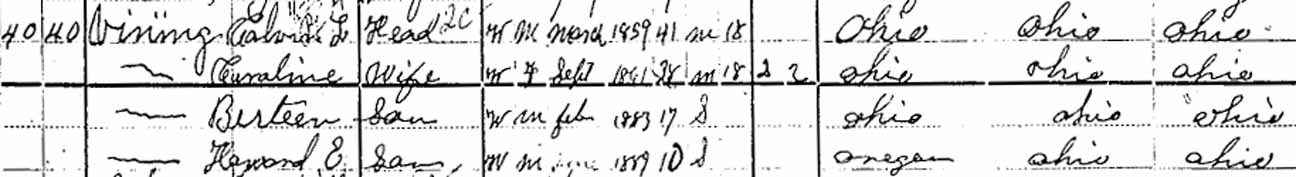 40 40 Vining Calvin L Head 2C W M March 1859 41 M 18 Ohio Ohio Ohio
— Wife W F Sept 1861 38 M 18 2 2 Ohio Ohio Ohio
— Berteen Son W M Feb 1883 17 S Ohio Ohio Ohio
— Howard E Son W M 1889 10 S Oregon Ohio Ohio